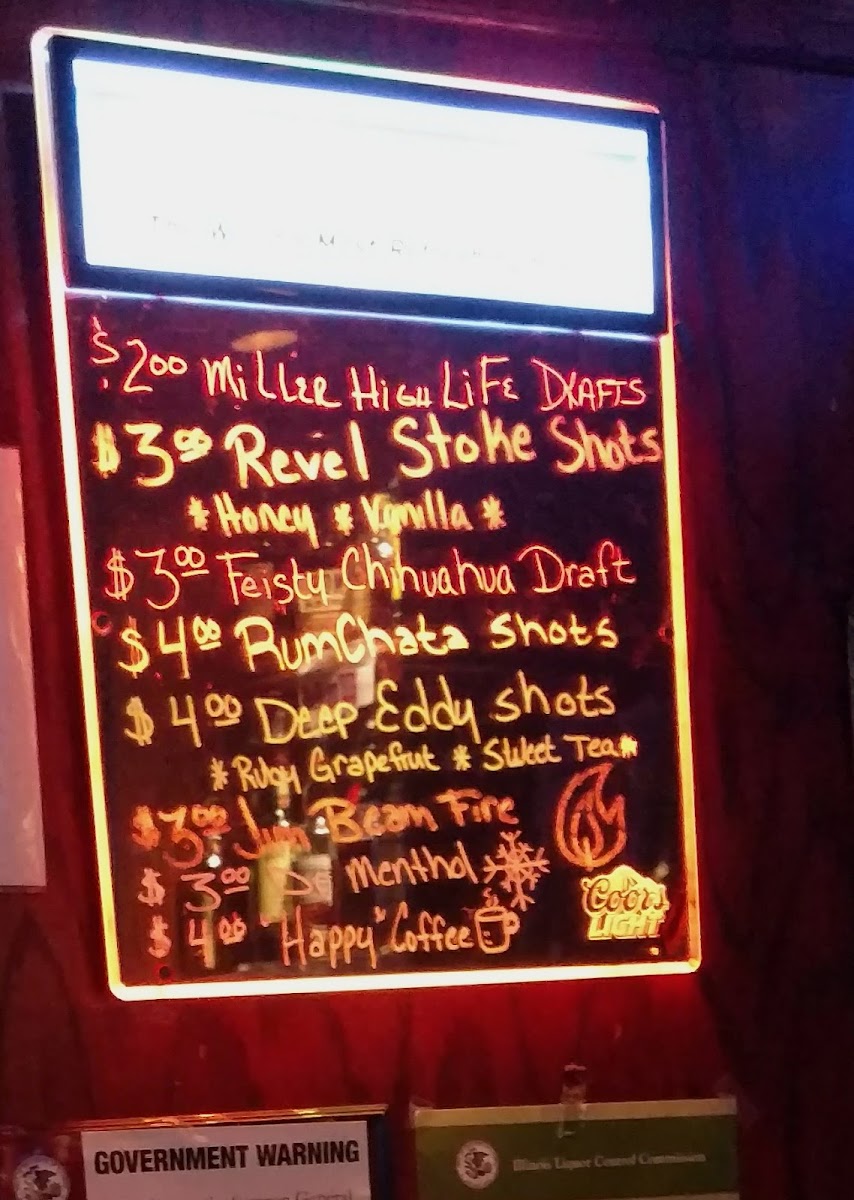 $2.00 Miller High Life Drafts
$3.00 Revel Stoke Shots
*Honey * Vanilla *
$3.00 Feisty Chihuahua Draft
$4.00 RumChata Shots
$4.00 Deep Eddy shots
*Ruby Grapefruit * Sweet Tea*
$3.00 Jim Beam Fire
$3.00 DE Menthol
$4.00 "Happy" Coffee
Coors
LIGHT
GOVERNMENT WARNING
Illinois Liquor Control Commission